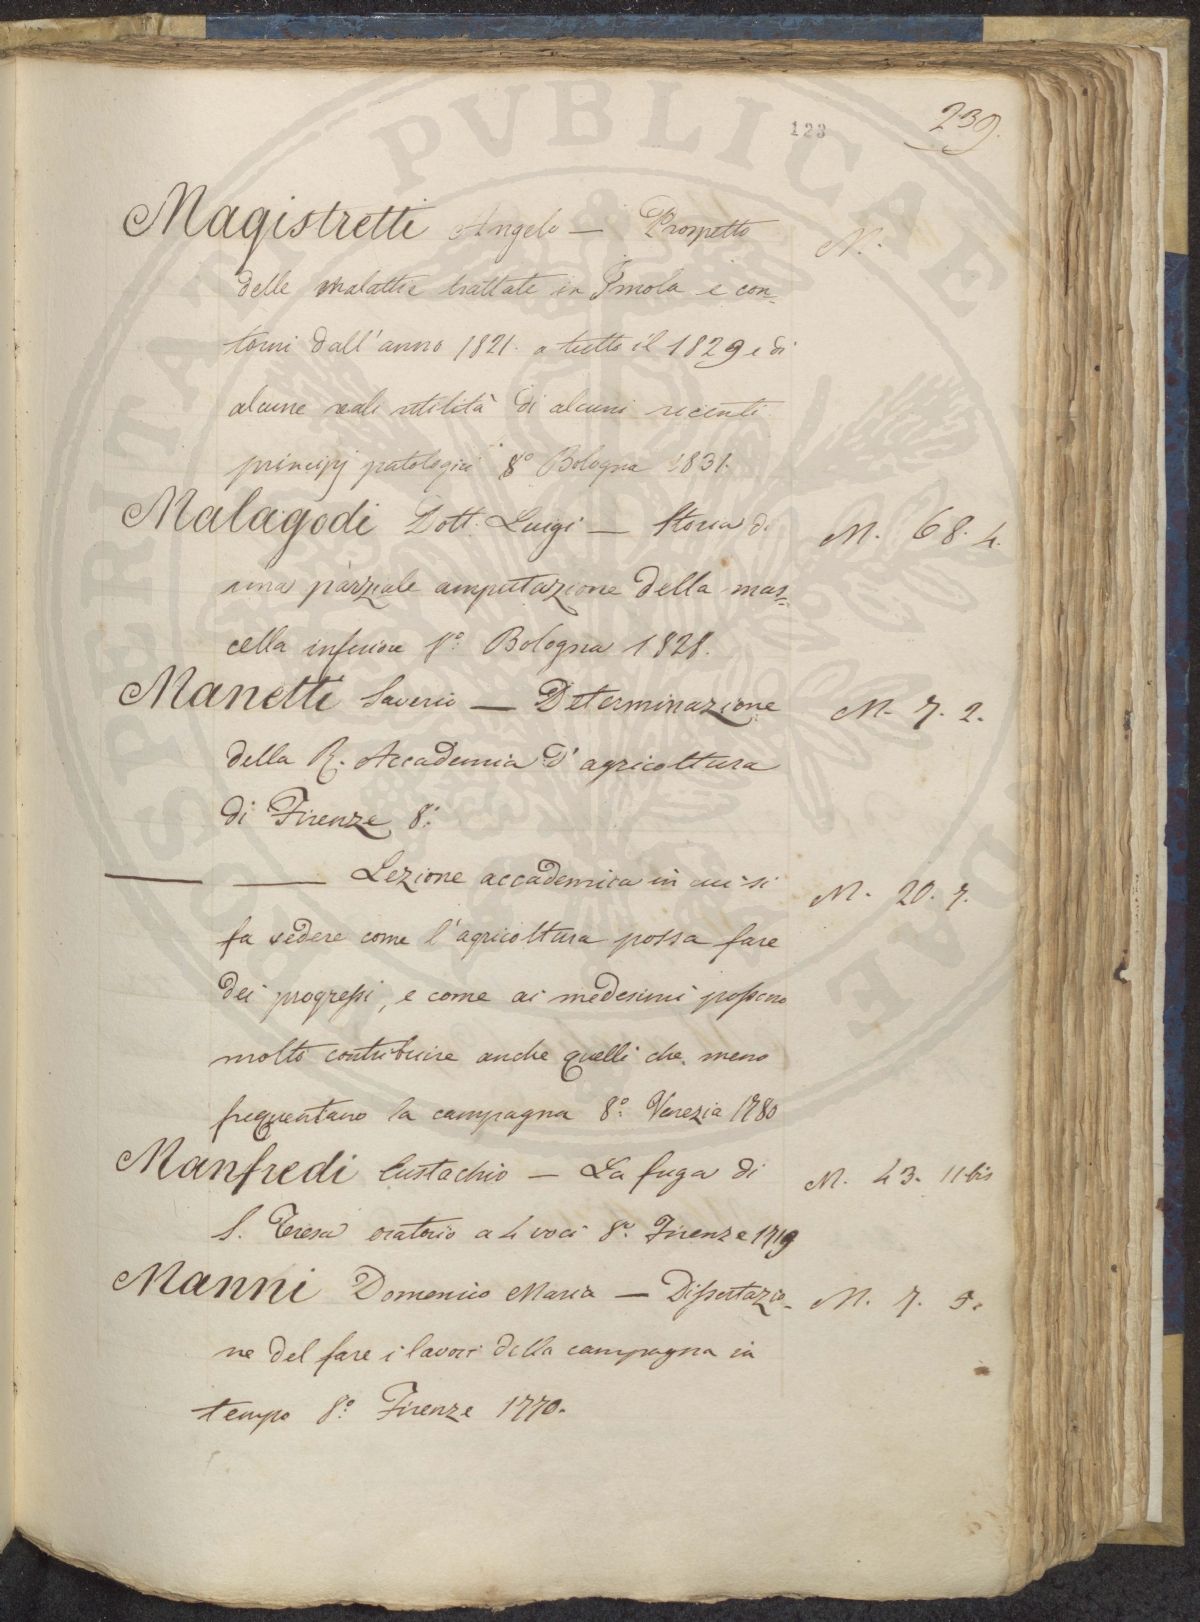 239.
123
Magistretti Angelo — Prospetto M.
delle malattie trattate in Imola e con=
torni dall'anno 1821. a tutto il 1829 e di
alcune reali utilità di alcuni recenti
principj patologici 8º Bologna 1831.
Malagodi Dott. Luigi — Storia di M. 68. 4.
una parziale amputazione della mas=
cella inferiore 8º. Bologna 1828.
Manetti Saverio — Determinazione M. 7. 2.
della R. Accademia d'agricoltura
di Firenze 8º.
— — Lezione accademica in cui si M. 20. 7.
fa vedere come l'agricoltura possa fare
dei progressi, e come ai medesimi possono
molto contribuire anche quelli che meno
frequentano la campagna 8º. Venezia 1780
Manfredi Eustachio — La fuga di M. 43. 11 bis
S. Teresa oratorio a 4 voci 8º. Firenze 1719
Manni Domenico Maria — Dissertazio= M. 7. 5.
ne del fare i lavori della campagna in
tempo 8º. Firenze 1770.
PROSPERITATI PVBLICAE AVGENDAE